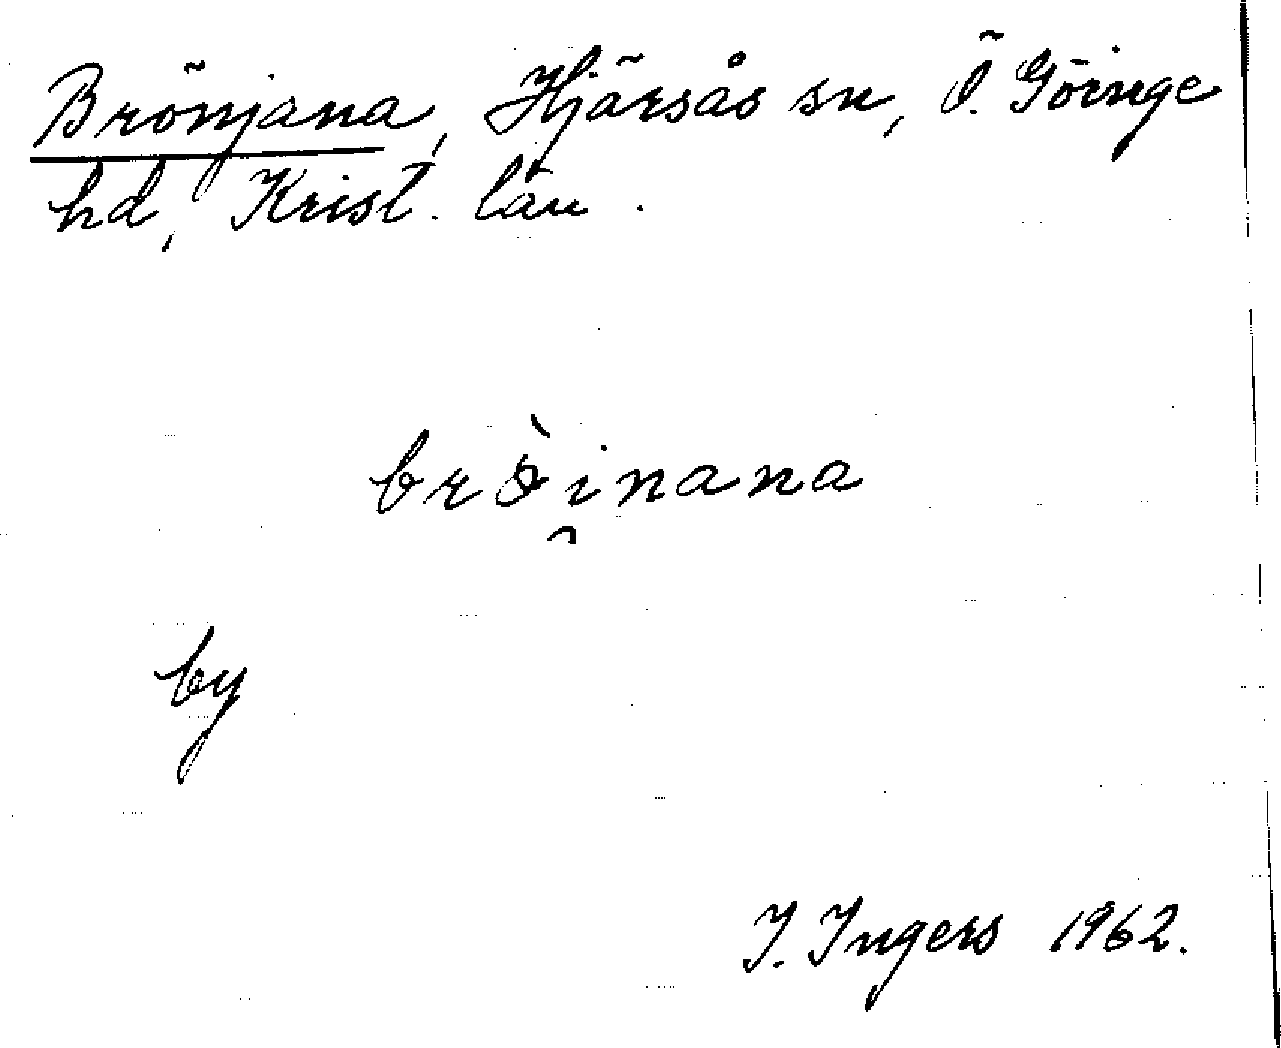 Brönjana, Hjärsås sn, Ö. Göinge
hd, Krist. län.
brò̤i̯nana
by
I. Ingers 1962.